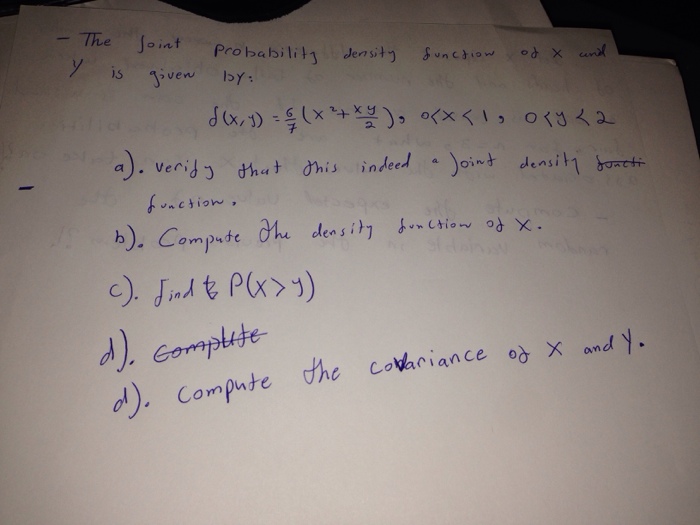 - The Joint Probability density function of X and
Y is given by:
f(x,y) = 6/7 (x² + xy/2), 0<x<1, 0<y<2
a). verify that this indeed a Joint density functi
function.
b). Compute the density function of X.
c). find P(X>y)
d). Compute
d). Compute the covariance of X and Y.